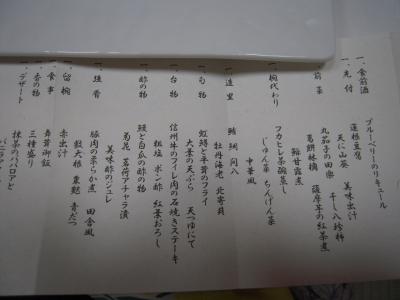 一、食前酒
ブルーベリーのリキュール
一、先付
蓮根豆腐 美味出汁
天に山葵 干し八珍柿
前菜
丸茄子の田楽 薩摩芋の紅茶煮
葛餅林檎
鮎甘露煮
一、椀代わり
フカヒレ茶碗蒸し 中華風
じゅん菜 ちんげん菜
一、造里
鮪 鯛 間八
牡丹海老 北寄貝
一、旬物
虹鱒と平茸のフライ
大葉の天ぷら 天つゆにて
一、台物
信州牛のフィレ肉の石焼きステーキ
粗塩 ポン酢 紅葉おろし
一、酢の物
鰻と白瓜の酢の物
菊花 茗荷アチャラ漬
美味酢のジュレ
一、強肴
豚肉の柔らか煮 田舎風
殿大根 粟麩 青だつ
一、留椀
赤出汁
一、食事
舞茸御飯
一、香の物
三種盛り
一、デザート
抹茶のババロアと